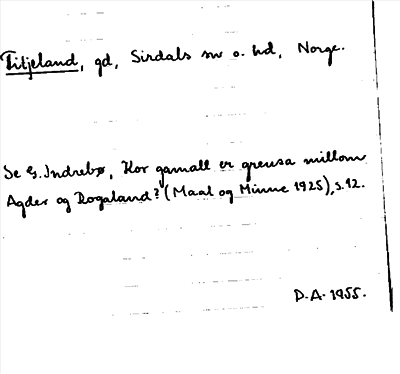 Titjeland, gd, Sirdals sn o. hd, Norge.
Se G. Indrebø, Kor gamall er grensa millom
Agder og Rogaland? (Maal og Minne 1925), s. 12.
D.A. 1955.